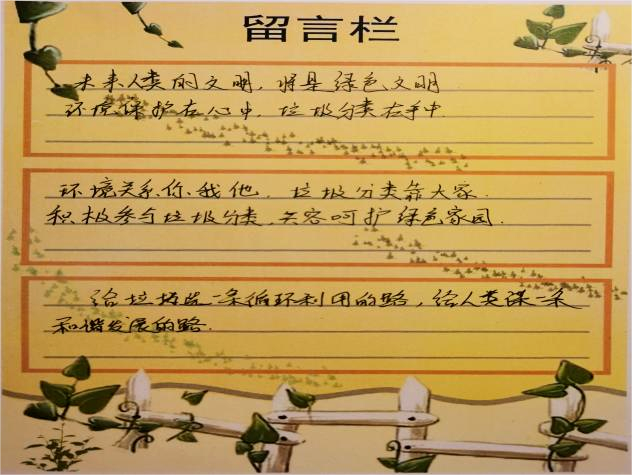 留言栏
未来人类的文明，将是绿色文明
环境保护在心中，垃圾分类在手中.
环境关系你我他，垃圾分类靠大家.
积极参与垃圾分类，共容呵护绿色家园.
给垃圾选一条循环利用的路，给人类谋一条
和谐发展的路.